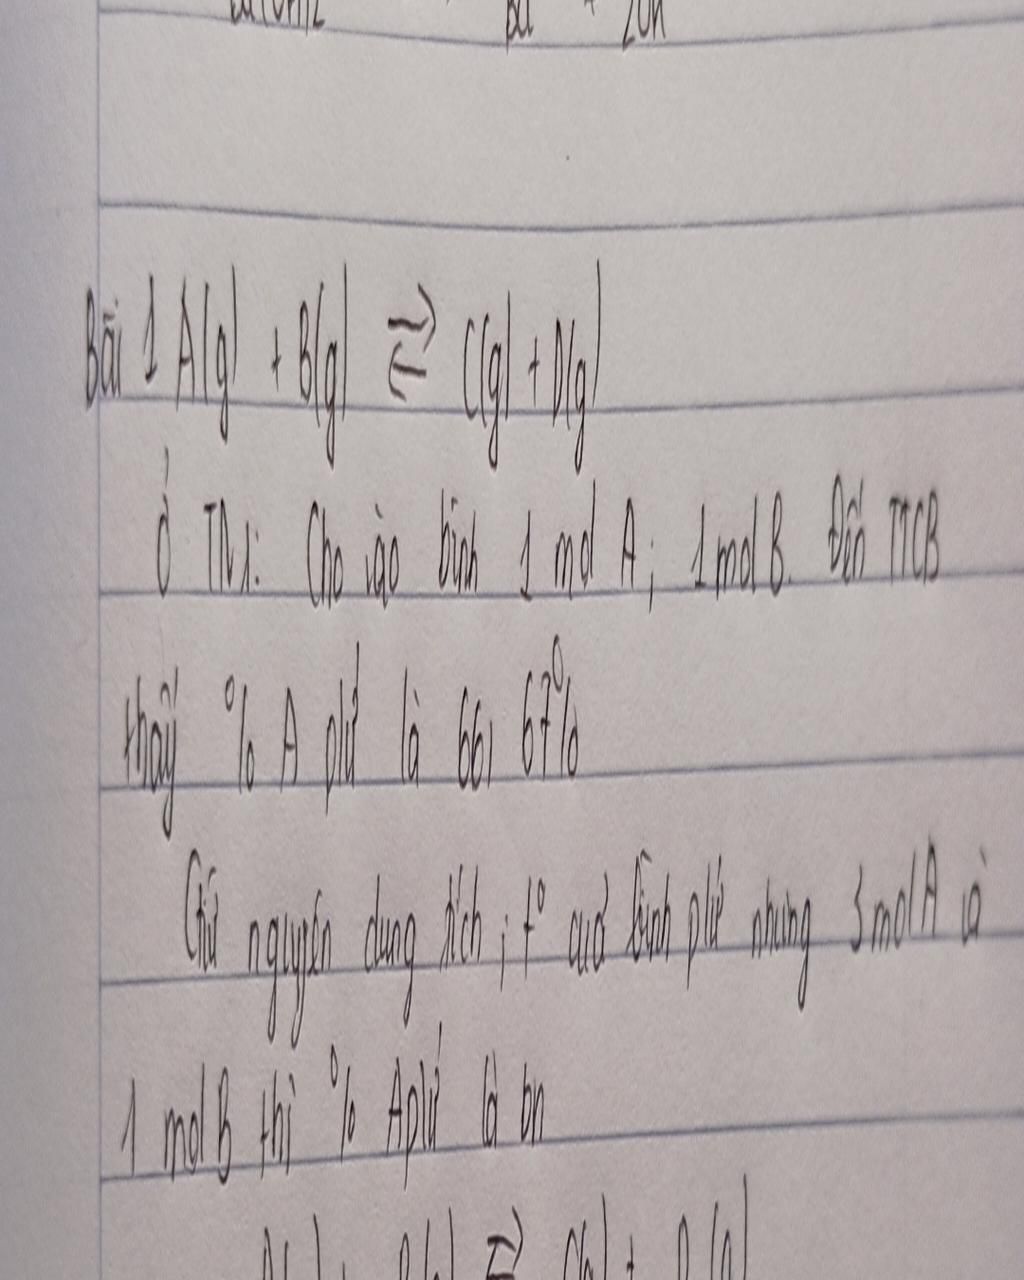 Bài 1 A(g) + B(g) ⇌ C(g) + D(g)
Ở TN1: Cho vào bình 1 mol A; 1 mol B. Đến TTCB
thấy % A pứ là 66,67%
Giữ nguyên dung tích; t° của bình pứ nhưng 3 mol A và
1 mol B thì % A pứ là bn